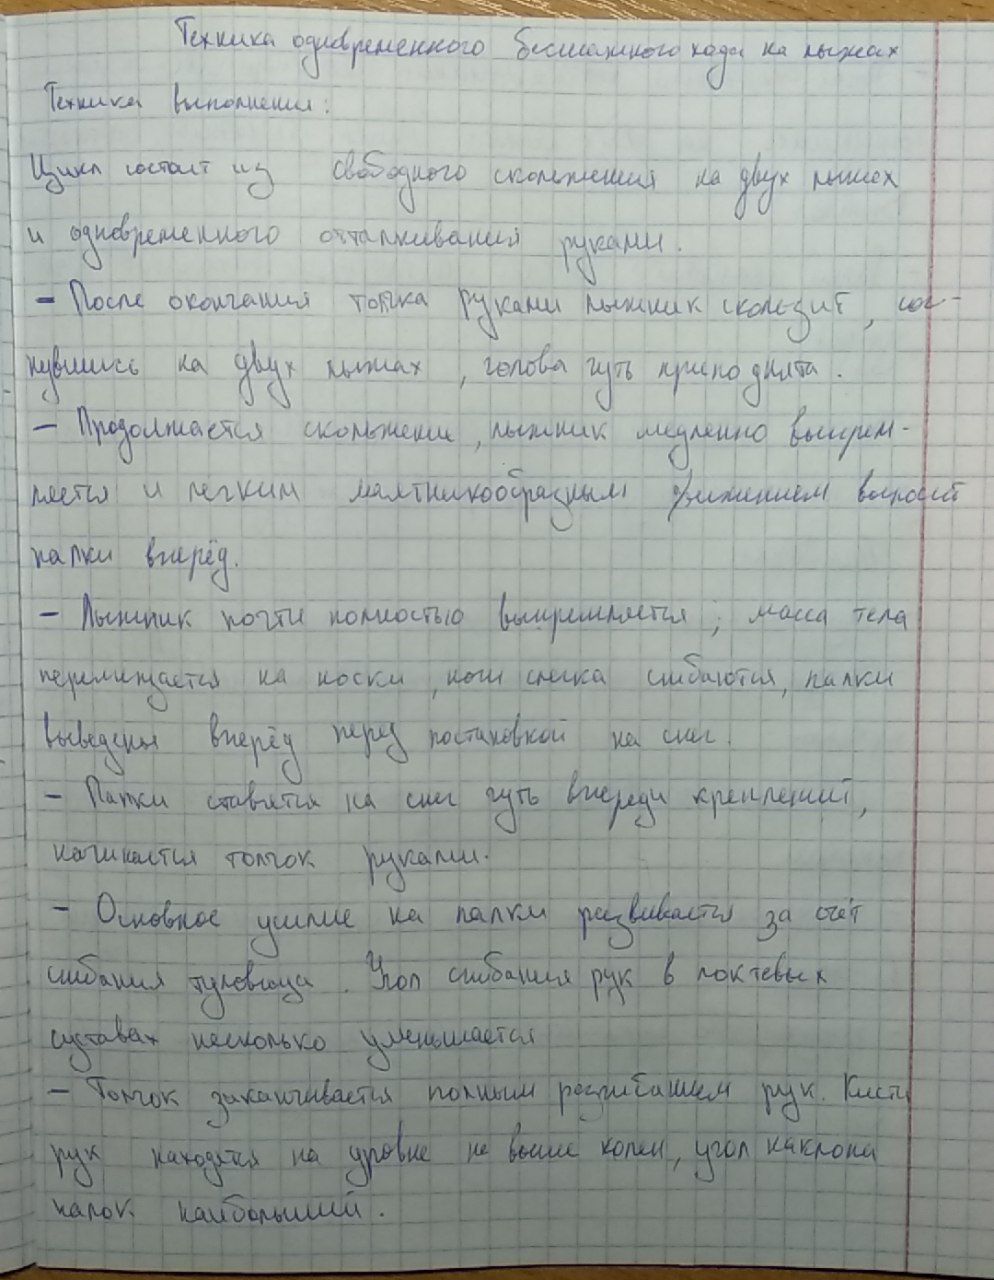 Техника одновременного бесшажного хода на лыжах
Техника выполнения:
Цикл состоит из свободного скольжения на двух лыжах
и одновременного отталкивания руками.
- После окончания толчка руками лыжник скользит, сог-
нувшись на двух лыжах, голова чуть приподнята.
- Продолжается скольжение, лыжник медленно выпрям-
ляется и легким маятникообразным движением выносит
палки вперёд.
- Лыжник почти полностью выпрямляется; масса тела
перемещается на носки, ноги слегка сгибаются, палки
выведены вперёд перед постановкой на снег.
- Палки ставятся на снег чуть впереди креплений,
начинается толчок руками.
- Основное усилие на палки развивается за счёт
сгибания туловища. Угол сгибания рук в локтевых
суставах несколько уменьшается
- Толчок заканчивается полным разгибанием рук. Кисти
рук находятся на уровне не выше колен, угол наклона
палок наибольший.